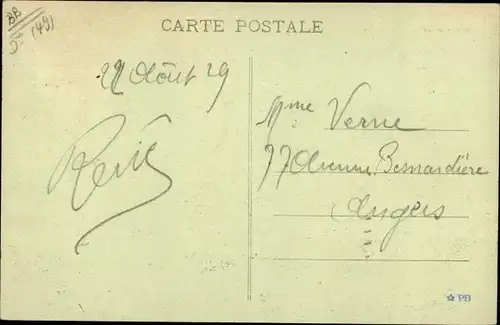 BB
(49)
CARTE POSTALE
22 Août 29
Mme Verne
77 Avenue Besnardière
Angers
René
PB